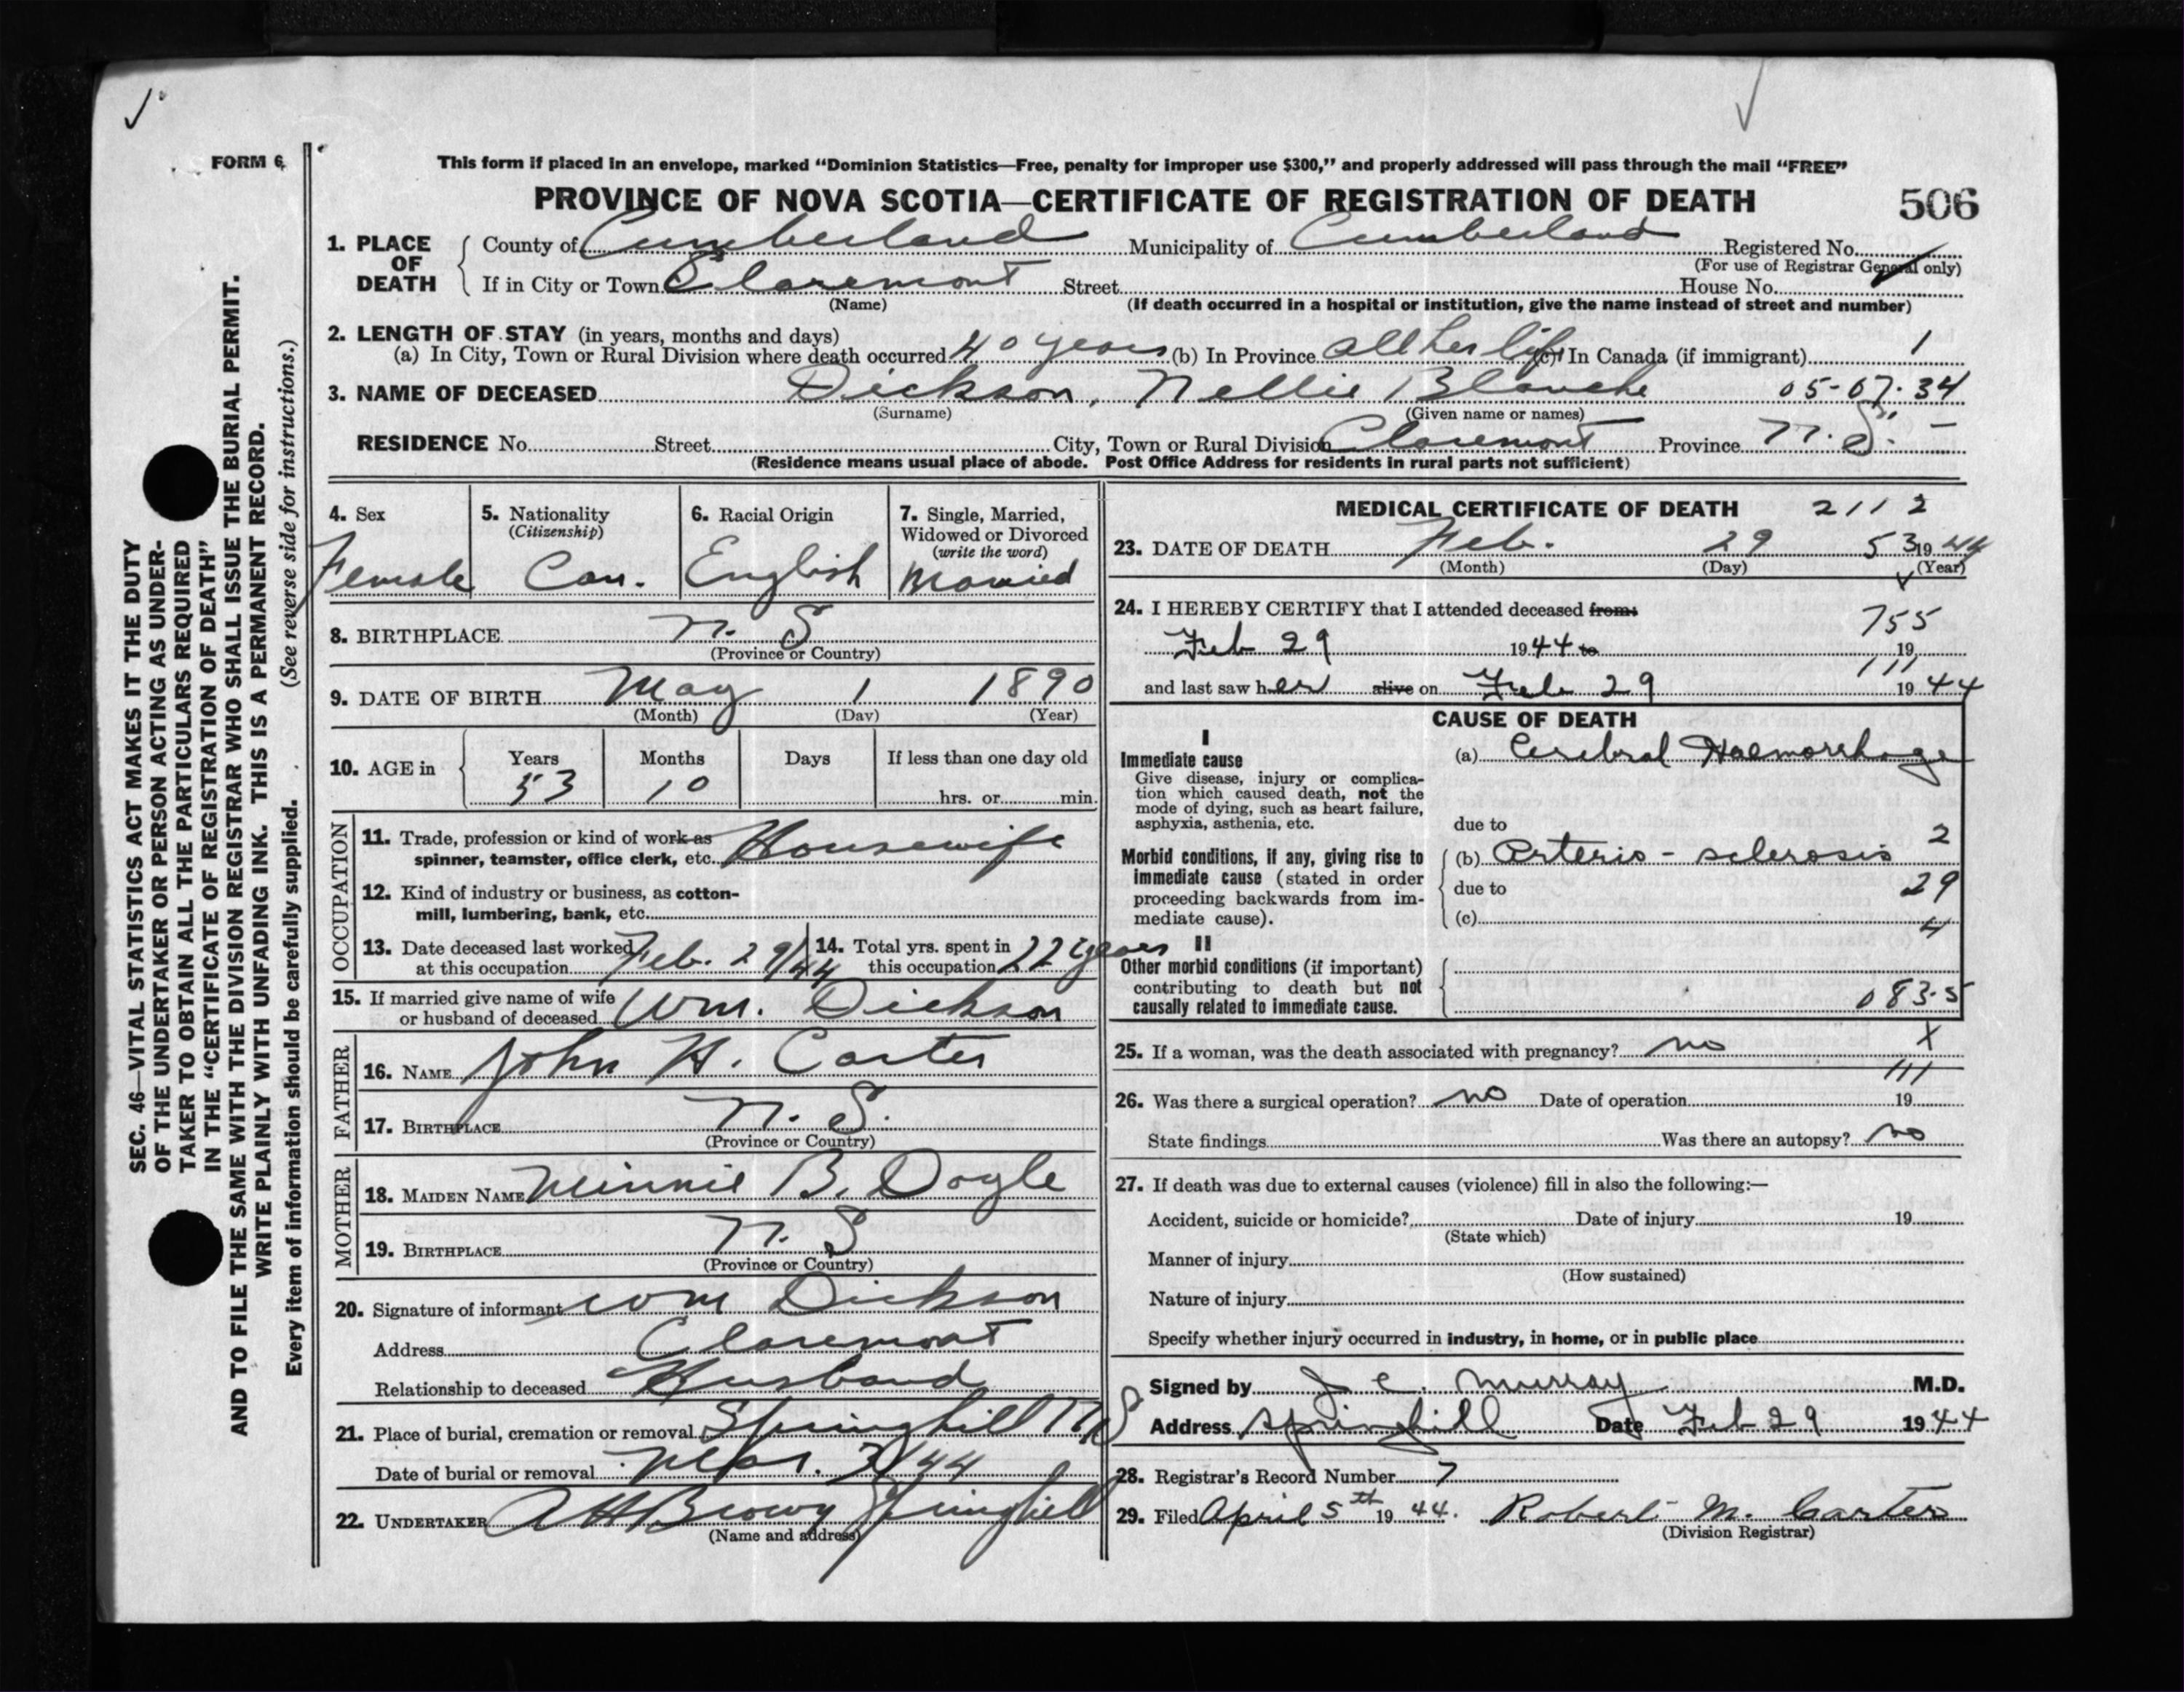 FORM 6
This form if placed in an envelope, marked “Dominion Statistics—Free, penalty for improper use $300,” and properly addressed will pass through the mail “FREE”
PROVINCE OF NOVA SCOTIA—CERTIFICATE OF REGISTRATION OF DEATH 506
1. PLACE OF DEATH County of Cumberland Municipality of Cumberland Registered No.
(For use of Registrar General only)
If in City or Town Claremont Street House No.
(Name) (If death occurred in a hospital or institution, give the name instead of street and number)
2. LENGTH OF STAY (in years, months and days)
(a) In City, Town or Rural Division where death occurred 40 years (b) In Province all her life (c) In Canada (if immigrant) 1
3. NAME OF DECEASED Dickson, Nellie Blanche 05-07-34
(Surname) (Given name or names)
RESIDENCE No. Street City, Town or Rural Division Claremont Province N.S. -
(Residence means usual place of abode. Post Office Address for residents in rural parts not sufficient)
4. Sex 5. Nationality (Citizenship) 6. Racial Origin 7. Single, Married, Widowed or Divorced (write the word)
Female Can. English Married
8. BIRTHPLACE N. S
(Province or Country)
9. DATE OF BIRTH May 1 1890
(Month) (Day) (Year)
10. AGE in Years Months Days If less than one day old
53 10 hrs. or min.
OCCUPATION
11. Trade, profession or kind of work as
spinner, teamster, office clerk, etc. Housewife
12. Kind of industry or business, as cotton-
mill, lumbering, bank, etc.
13. Date deceased last worked at this occupation Feb. 29/44 14. Total yrs. spent in this occupation 22 years
15. If married give name of wife
or husband of deceased Wm. Dickson
FATHER
16. NAME John H. Carter
17. BIRTHPLACE N. S.
(Province or Country)
MOTHER
18. MAIDEN NAME Minnie B. Doyle
19. BIRTHPLACE N. S
(Province or Country)
20. Signature of informant Wm Dickson
Address Claremont
Relationship to deceased Husband
21. Place of burial, cremation or removal Springhill NS
Date of burial or removal Mar. 3/44
22. UNDERTAKER A H Brown Springhill
(Name and address)
MEDICAL CERTIFICATE OF DEATH 2112
23. DATE OF DEATH Feb. 29 53 1944
(Month) (Day) (Year)
24. I HEREBY CERTIFY that I attended deceased from: 755
Feb 29 1944 to 19
111
and last saw her alive on Feb 29 1944
CAUSE OF DEATH
I
Immediate cause (a) Cerebral Haemorrhage
Give disease, injury or complica-
tion which caused death, not the
mode of dying, such as heart failure,
asphyxia, asthenia, etc. due to
Morbid conditions, if any, giving rise to (b) Arterio-sclerosis 2
immediate cause (stated in order due to 29
proceeding backwards from im-
mediate cause). (c) 4
II
Other morbid conditions (if important)
contributing to death but not
causally related to immediate cause. 083.5
25. If a woman, was the death associated with pregnancy? no X
111
26. Was there a surgical operation? no Date of operation 19
State findings Was there an autopsy? no
27. If death was due to external causes (violence) fill in also the following:—
Accident, suicide or homicide? Date of injury 19
(State which)
Manner of injury
(How sustained)
Nature of injury
Specify whether injury occurred in industry, in home, or in public place
Signed by J. C. Murray M.D.
Address Springhill Date Feb 29 1944
28. Registrar's Record Number 7
29. Filed April 5th 1944. Robert M. Carter
(Division Registrar)
SEC. 46—VITAL STATISTICS ACT MAKES IT THE DUTY
OF THE UNDERTAKER OR PERSON ACTING AS UNDER-
TAKER TO OBTAIN ALL THE PARTICULARS REQUIRED
IN THE “CERTIFICATE OF REGISTRATION OF DEATH”
AND TO FILE THE SAME WITH THE DIVISION REGISTRAR WHO SHALL ISSUE THE BURIAL PERMIT.
WRITE PLAINLY WITH UNFADING INK. THIS IS A PERMANENT RECORD.
Every item of information should be carefully supplied. (See reverse side for instructions.)